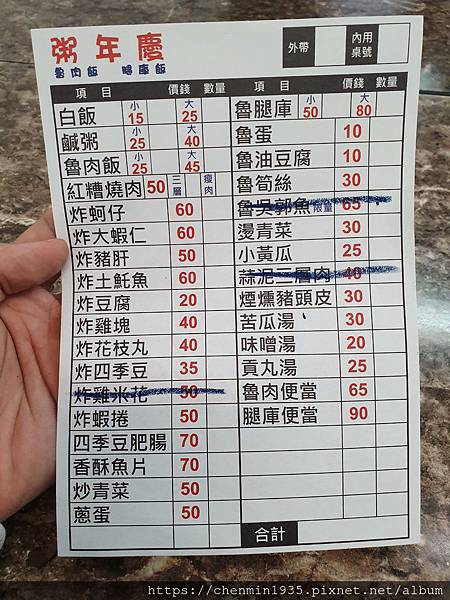 粥年慶
魯肉飯 腿庫飯
外帶
內用桌號
項目 價錢 數量 項目 價錢 數量
白飯 小15 大25
鹹粥 小25 大40
魯肉飯 小25 大45
紅糟燒肉 50 三層 瘦肉
炸蚵仔 60
炸大蝦仁 60
炸豬肝 50
炸土魠魚 60
炸豆腐 20
炸雞塊 40
炸花枝丸 40
炸四季豆 35
炸雞米花 50
炸蝦捲 50
四季豆肥腸 70
香酥魚片 70
炒青菜 50
蔥蛋 50
魯腿庫 小50 大80
魯蛋 10
魯油豆腐 10
魯筍絲 30
魯吳郭魚 限量 65
燙青菜 30
小黃瓜 25
蒜泥三層肉 40
煙燻豬頭皮 30
苦瓜湯 30
味噌湯 20
貢丸湯 25
魯肉便當 65
腿庫便當 90
合計
https://chenmin1935.pixnet.net/album